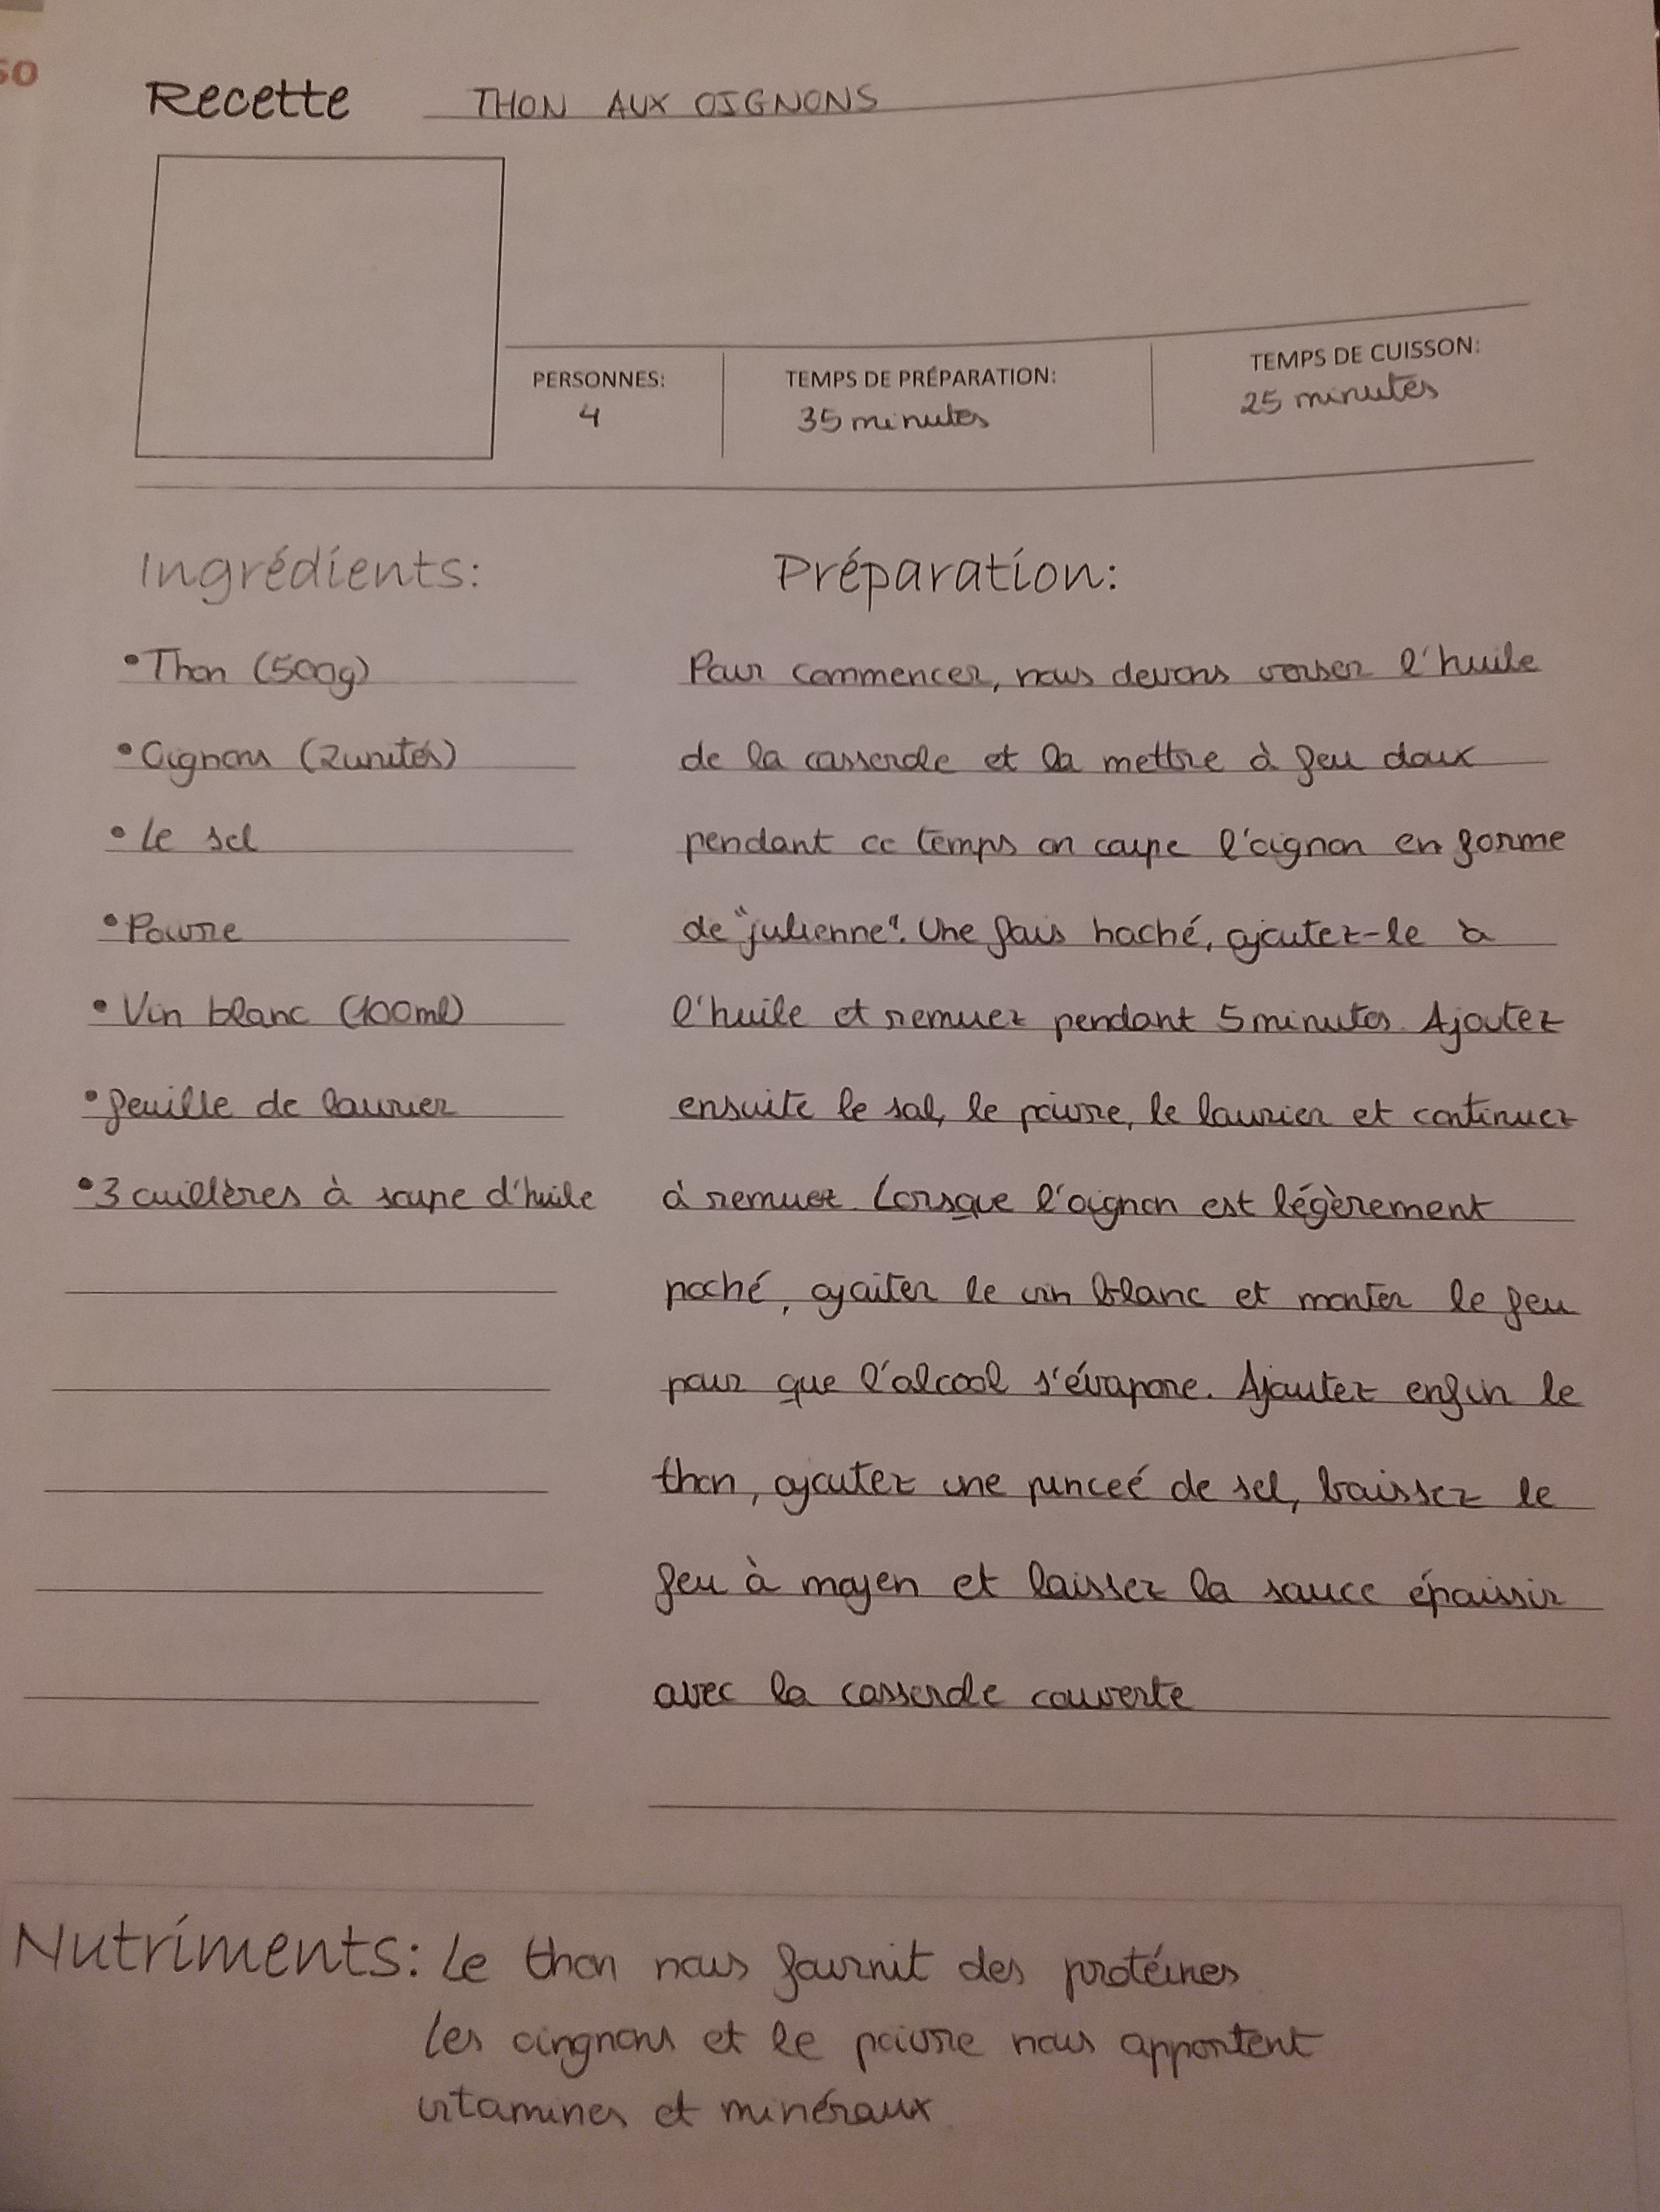 50
Recette THON AUX OIGNONS
PERSONNES:
4
TEMPS DE PRÉPARATION:
35 minutes
TEMPS DE CUISSON:
25 minutes
Ingrédients:
•Thon (500g)
•Oignons (2unités)
•Le sel
•Poivre
•Vin blanc (100ml)
•feuille de laurier
•3 cuillères à soupe d'huile
Préparation:
Pour commencer, nous devons verser l'huile
de la casserole et la mettre à feu doux
pendant ce temps on coupe l'oignon en forme
de "julienne". Une fois haché, ajoutez-le à
l'huile et remuez pendant 5 minutes. Ajoutez
ensuite le sal, le poivre, le laurier et continuez
à remuez. Lorsque l'oignon est légèrement
poché, ajoiter le vin blanc et monter le feu
pour que l'alcool s'évapore. Ajoutez enfin le
thon, ajoutez une punceé de sel, baissez le
feu à moyen et laissez la sauce épaissir
avec la casserole couverte
Nutriments: Le thon nous fournit des protéines
Les oingnons et le poivre nous apportent
vitamines et minéraux